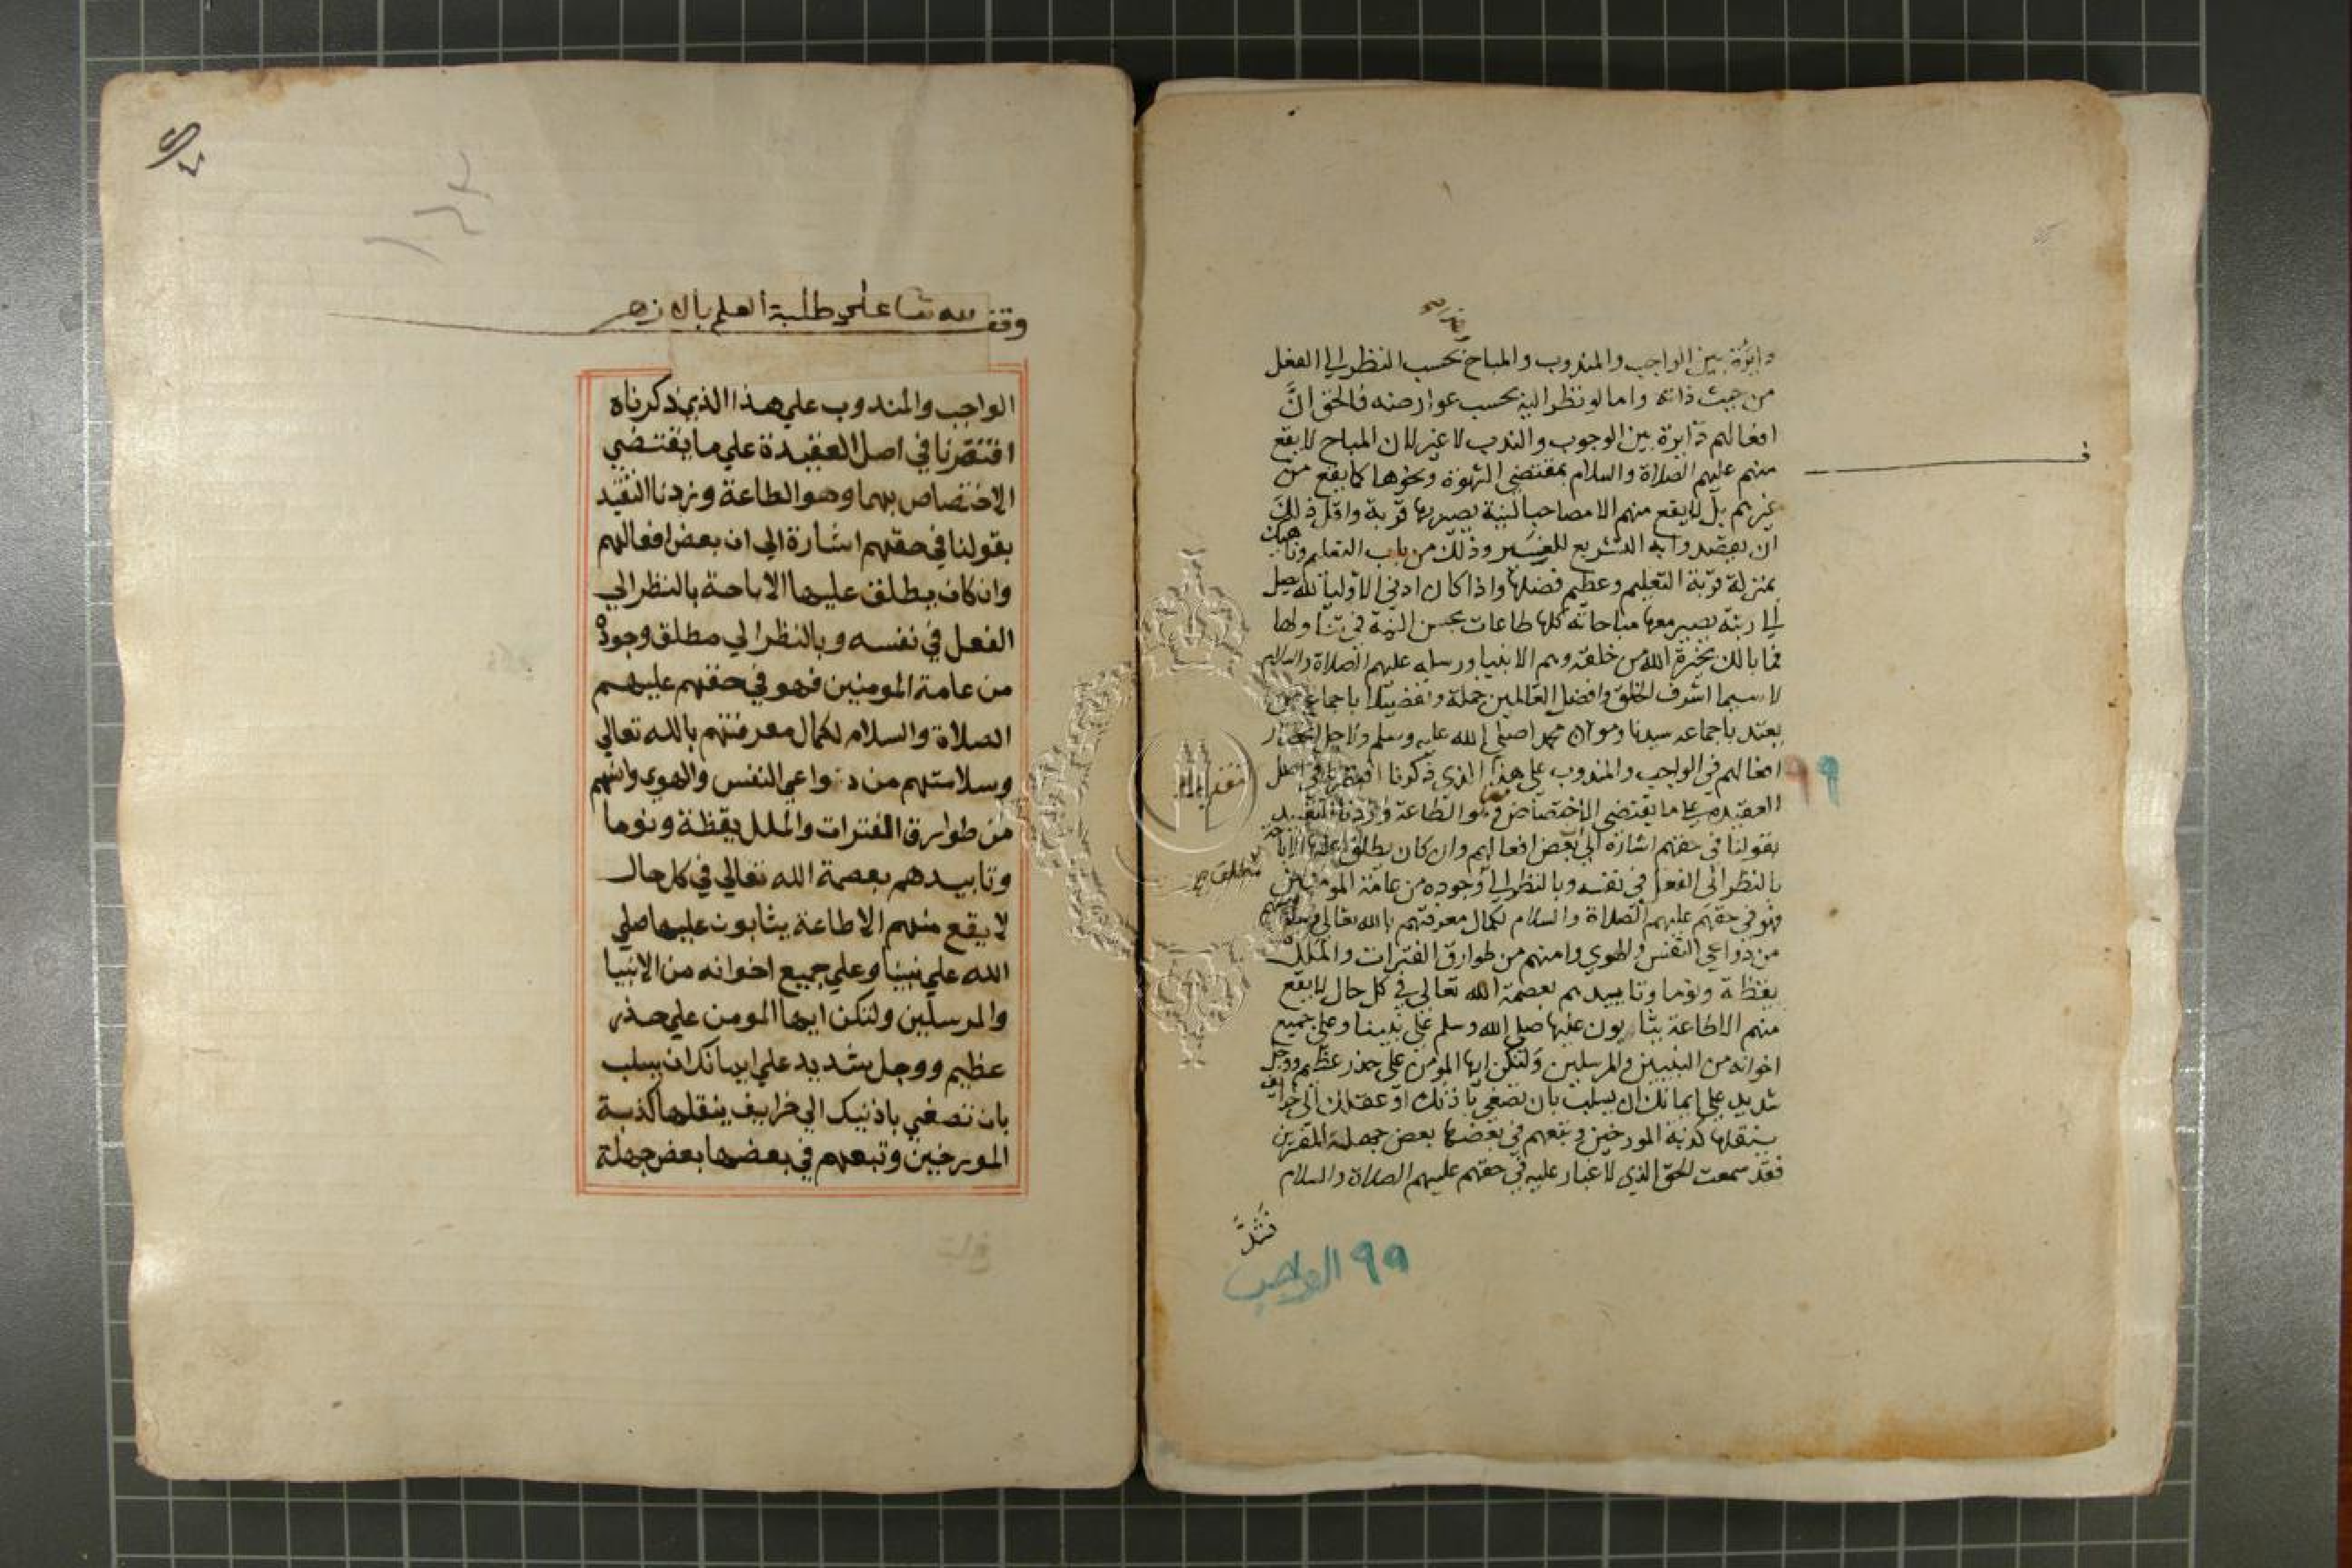 دايرة بين الواجب والمندوب والمباح بحسب النظر الي الفعل
من حيث ذاته واما لو نظر اليه بحسب عوارضه فالحق انَّ
افعالهم دايرة بين الوجوب والندب لا غير لان المباح لا يقع
منهم عليهم الصلاة والسلام بمقتضي الشهوة ونحوها كما يقع من
غيرهم بل لا يقع منهم الا مصاحبا لنية يصير بها قربة واقل ذلك
ان يقصدوا به التشريع للغير وذلك من باب التعليم وناهيك
بمنزلة قربة التعليم وعظيم فضلها واذا كان ادني الاوليا لله يصل
الي رتبة يصير معها مباحاته كلها طاعات بحسن النية في تناولها
فما بالك بخيرة الله من خلقه وهم الانبيا ورسله عليهم الصلاة والسلام
لا سيما اشرف الخلق وافضل العالمين جملة وتفضيلا باجماع من
يعتد باجماعه سيدنا ومولانا محمد صلي الله عليه وسلم ولاجل انحصار
افعالهم في الواجب والمندوب علي هذا الذي ذكرنا اقتصرنا في اصل
العقيدة علي ما يقتضي الاختصاص وهو الطاعة وزدنا التقييد
بقولنا في حقهم اشارة الي بعض افعالهم وان كان يطلق عليها الاباحة
بالنظر الي الفعل في نفسه وبالنظر الي وجوده من عامة المومنين
فهو في حقهم عليهم الصلاة والسلام لكمال معرفتهم بالله تعالي وسلامتهم
من دواعي النفس والهوي وامنهم من طوارق الفترات والملل
يقظة ونوما وتاييدهم بعصمة الله تعالي في كل حال لا يقع
منهم الا طاعة يثابون عليها صلي الله وسلم علي نبينا وعلي جميع
اخوانه من النبيين والمرسلين ولتكن ايها المومن علي حذر عظيم ووجل
شديد علي ايمانك ان يسلب بان تصغي باذنك او عقلك الي خرايف
ينقلها كذبة المورخين وتبعهم في بعضها بعض جهلة المفسرين
فقد سمعت الحق الذي لا غبار عليه في حقهم عليهم الصلاة والسلام
فَشُدَّ
٩٩
٩٩ الواجب
وقف لله تعا علي طلبة العلم بالازهر
الواجب والمندوب علي هذا الذي ذكرناه
اقتصرنا في اصل العقيدة علي ما يقتضي
الاختصاص بهما وهو الطاعة وزدنا التقيد
بقولنا في حقهم اشارة الي ان بعض افعالهم
وان كان يطلق عليها الاباحة بالنظر الي
الفعل في نفسه وبالنظر الي مطلق وجوده
من عامة المومنين فهو في حقهم عليهم
الصلاة والسلام لكمال معرفتهم بالله تعالي
وسلامتهم من دواعي النفس والهوي وامنهم
من طوارق الفترات والملل يقظة ونوما
وتاييدهم بعصمة الله تعالي في كل حال
لا يقع منهم الا طاعة يثابون عليها صلي
الله علي نبينا وعلي جميع اخوانه من الانبيا
والمرسلين ولتكن ايها المومن علي حذر
عظيم ووجل شديد علي ايمانك ان يسلب
بان تصغي باذنيك الي خرايف ينقلها كذبة
المورخين وتبعهم في بعضها بعض جهلة